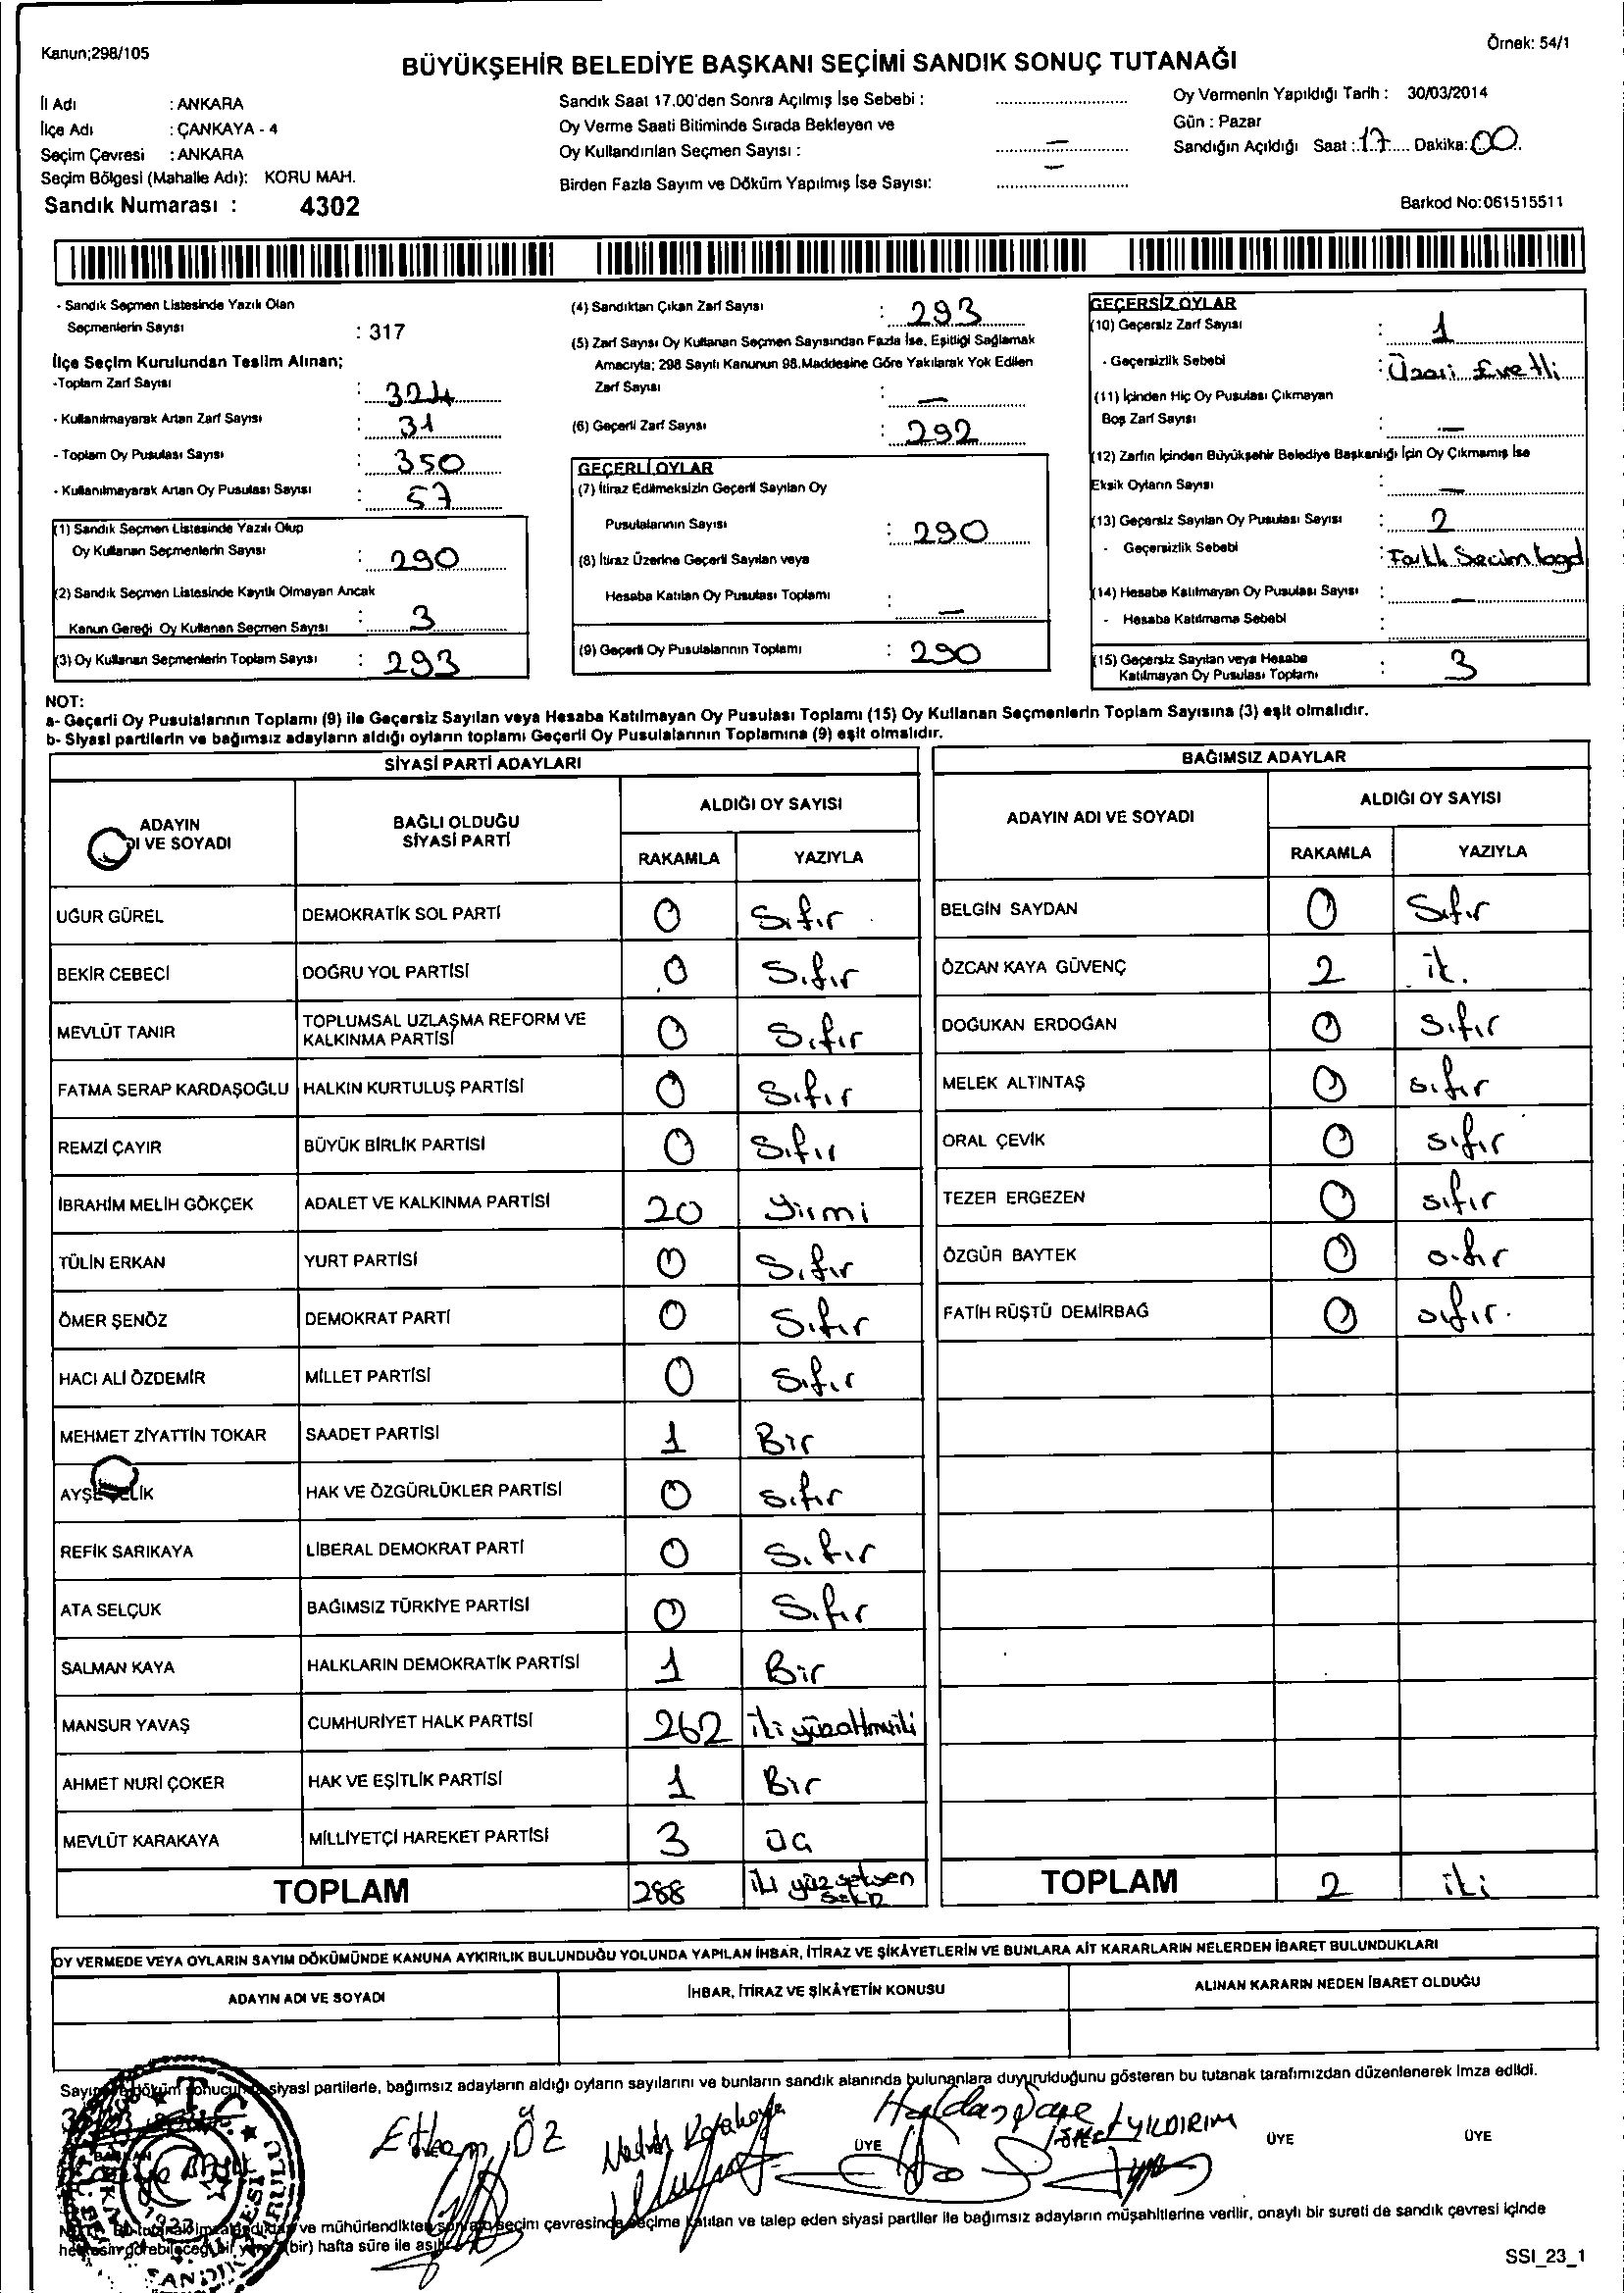 Kanun;298/105
Örnek: 54/1
BÜYÜKŞEHİR BELEDİYE BAŞKANI SEÇİMİ SANDIK SONUÇ TUTANAĞI
İl Adı : ANKARA
İlçe Adı : ÇANKAYA - 4
Seçim Çevresi : ANKARA
Seçim Bölgesi (Mahalle Adı): KORU MAH.
Sandık Numarası : 4302
Sandık Saat 17.00'den Sonra Açılmış İse Sebebi :
Oy Verme Saati Bitiminde Sırada Bekleyen ve
Oy Kullandırılan Seçmen Sayısı : —
Birden Fazla Sayım ve Döküm Yapılmış İse Sayısı: —
Oy Vermenin Yapıldığı Tarih : 30/03/2014
Gün : Pazar
Sandığın Açıldığı Saat : 17 Dakika: 00
Barkod No:061515511
- Sandık Seçmen Listesinde Yazılı Olan
Seçmenlerin Sayısı : 317
İlçe Seçim Kurulundan Teslim Alınan;
-Toplam Zarf Sayısı : 324
- Kullanılmayarak Artan Zarf Sayısı : 31
- Toplam Oy Pusulası Sayısı : 350
- Kullanılmayarak Artan Oy Pusulası Sayısı : 57
(1) Sandık Seçmen Listesinde Yazılı Olup
Oy Kullanan Seçmenlerin Sayısı : 290
(2) Sandık Seçmen Listesinde Kayıtlı Olmayan Ancak
Kanun Gereği Oy Kullanan Seçmen Sayısı : 3
(3) Oy Kullanan Seçmenlerin Toplam Sayısı : 293
(4) Sandıktan Çıkan Zarf Sayısı : 293
(5) Zarf Sayısı Oy Kullanan Seçmen Sayısından Fazla İse, Eşitliği Sağlamak
Amacıyla; 298 Sayılı Kanunun 98.Maddesine Göre Yakılarak Yok Edilen
Zarf Sayısı : —
(6) Geçerli Zarf Sayısı : 292
GEÇERLİ OYLAR
(7) İtiraz Edilmeksizin Geçerli Sayılan Oy
Pusulalarının Sayısı : 290
(8) İtiraz Üzerine Geçerli Sayılan veya
Hesaba Katılan Oy Pusulası Toplamı : —
(9) Geçerli Oy Pusulalarının Toplamı : 290
GEÇERSİZ OYLAR
(10) Geçersiz Zarf Sayısı : 1
- Geçersizlik Sebebi : Üzeri Evetli
(11) İçinden Hiç Oy Pusulası Çıkmayan
Boş Zarf Sayısı : —
(12) Zarfın İçinden Büyükşehir Belediye Başkanlığı İçin Oy Çıkmamış İse
Eksik Oyların Sayısı : —
(13) Geçersiz Sayılan Oy Pusulası Sayısı : 2
- Geçersizlik Sebebi : Farklı Secim
(14) Hesaba Katılmayan Oy Pusulası Sayısı : —
- Hesaba Katılmama Sebebi :
(15) Geçersiz Sayılan veya Hesaba
Katılmayan Oy Pusulası Toplamı : 3
NOT:
a- Geçerli Oy Pusulalarının Toplamı (9) ile Geçersiz Sayılan veya Hesaba Katılmayan Oy Pusulası Toplamı (15) Oy Kullanan Seçmenlerin Toplam Sayısına (3) eşit olmalıdır.
b- Siyasi partilerin ve bağımsız adayların aldığı oyların toplamı Geçerli Oy Pusulalarının Toplamına (9) eşit olmalıdır.
SİYASİ PARTİ ADAYLARI
ADAYIN
DI VE SOYADI
BAĞLI OLDUĞU
SİYASİ PARTİ
ALDIĞI OY SAYISI
RAKAMLA YAZIYLA
UĞUR GÜREL DEMOKRATİK SOL PARTİ 0 Sıfır
BEKİR CEBECİ DOĞRU YOL PARTİSİ 0 Sıfır
MEVLÜT TANIR TOPLUMSAL UZLAŞMA REFORM VE
KALKINMA PARTİSİ 0 Sıfır
FATMA SERAP KARDAŞOĞLU HALKIN KURTULUŞ PARTİSİ 0 Sıfır
REMZİ ÇAYIR BÜYÜK BİRLİK PARTİSİ 0 Sıfır
İBRAHİM MELİH GÖKÇEK ADALET VE KALKINMA PARTİSİ 20 Yirmi
TÜLİN ERKAN YURT PARTİSİ 0 Sıfır
ÖMER ŞENÖZ DEMOKRAT PARTİ 0 Sıfır
HACI ALİ ÖZDEMİR MİLLET PARTİSİ 0 Sıfır
MEHMET ZİYATTİN TOKAR SAADET PARTİSİ 1 Bir
AYŞE ÇELİK HAK VE ÖZGÜRLÜKLER PARTİSİ 0 Sıfır
REFİK SARIKAYA LİBERAL DEMOKRAT PARTİ 0 Sıfır
ATA SELÇUK BAĞIMSIZ TÜRKİYE PARTİSİ 0 Sıfır
SALMAN KAYA HALKLARIN DEMOKRATİK PARTİSİ 1 Bir
MANSUR YAVAŞ CUMHURİYET HALK PARTİSİ 262 iki yüzaltmışiki
AHMET NURİ ÇOKER HAK VE EŞİTLİK PARTİSİ 1 Bir
MEVLÜT KARAKAYA MİLLİYETÇİ HAREKET PARTİSİ 3 Üç
TOPLAM 288 iki yüzseksen
sekiz
BAĞIMSIZ ADAYLAR
ADAYIN ADI VE SOYADI
ALDIĞI OY SAYISI
RAKAMLA YAZIYLA
BELGİN SAYDAN 0 Sıfır
ÖZCAN KAYA GÜVENÇ 2 iki
DOĞUKAN ERDOĞAN 0 Sıfır
MELEK ALTINTAŞ 0 sıfır
ORAL ÇEVİK 0 sıfır
TEZER ERGEZEN 0 sıfır
ÖZGÜR BAYTEK 0 sıfır
FATİH RÜŞTÜ DEMİRBAĞ 0 sıfır.
TOPLAM 2 iki
OY VERMEDE VEYA OYLARIN SAYIM DÖKÜMÜNDE KANUNA AYKIRILIK BULUNDUĞU YOLUNDA YAPILAN İHBAR, İTİRAZ VE ŞİKÂYETLERİN VE BUNLARA AİT KARARLARIN NELERDEN İBARET BULUNDUKLARI
ADAYIN ADI VE SOYADI
İHBAR, İTİRAZ VE ŞİKÂYETİN KONUSU
ALINAN KARARIN NEDEN İBARET OLDUĞU
siyasi partilerle, bağımsız adayların aldığı oyların sayılarını ve bunların sandık alanında bulunanlara duyurulduğunu gösteren bu tutanak tarafımızdan düzenlenerek imza edildi.
Ethem ÖZ
Karakaya
YILDIRIM
ÜYE ÜYE ÜYE
ve mühürlendikten sonra seçim çevresinde seçime katılan ve talep eden siyasi partiler ile bağımsız adayların müşahitlerine verilir, onaylı bir sureti de sandık çevresi içinde
(bir) hafta süre ile
SSI_23_1